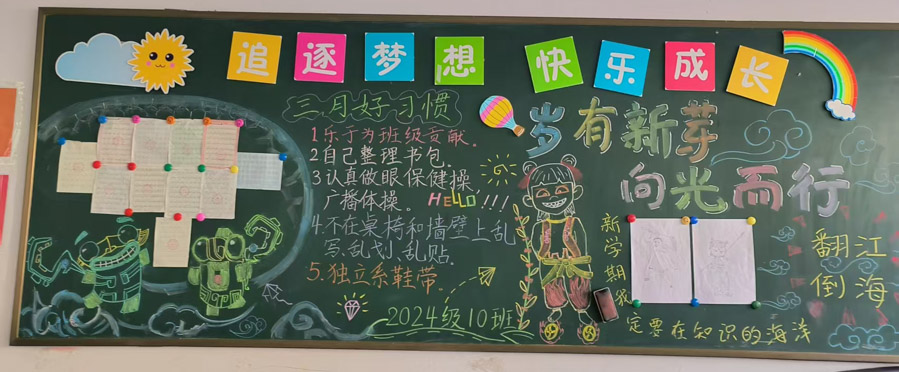 追逐梦想 快乐成长
三月好习惯
1.乐于为班级贡献.
2自己整理书包.
3认真做眼保健操,
广播体操。
HELLO!!!
4.不在桌椅和墙壁上乱
写、乱划、乱贴.
5.独立系鞋带.
2024级10班
岁有新芽
向光而行
新学期我
一定要在知识的海洋
翻江
倒海